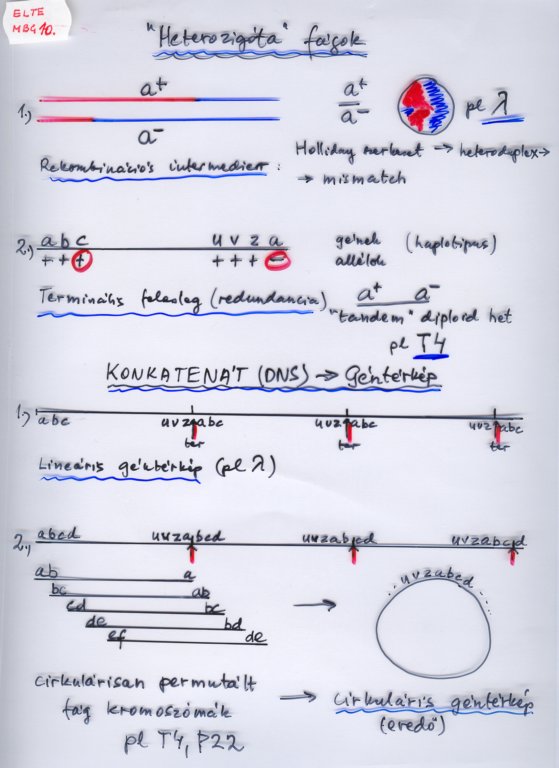 ELTE
MBG 10.
"Heterozigóta" fágok
1.) a+
a-
a+
a-
pl λ
Rekombinációs intermedier:
Holliday szerkezet → heteroduplex →
→ mismatch
2.) a b c u v z a
+ + + + + + -
gének (haplotípus)
allélok
Terminális felesleg (redundancia)
a+ a-
"tandem" diploid het
pl T4
KONKATENÁT (DNS) → Géntérkép
1.)
abc uvzabc uvzabc uvzabc
ter ter ter
Lineáris géntérkép (pl λ)
2.) abcd uvzabcd uvzabcd uvzabcd
ab a
bc ab
cd bc
de bd
ef de
..uvzabcd..
cirkulárisan permutált
fág kromoszómák
pl T4, P22
→ Cirkuláris géntérkép
(eredő)